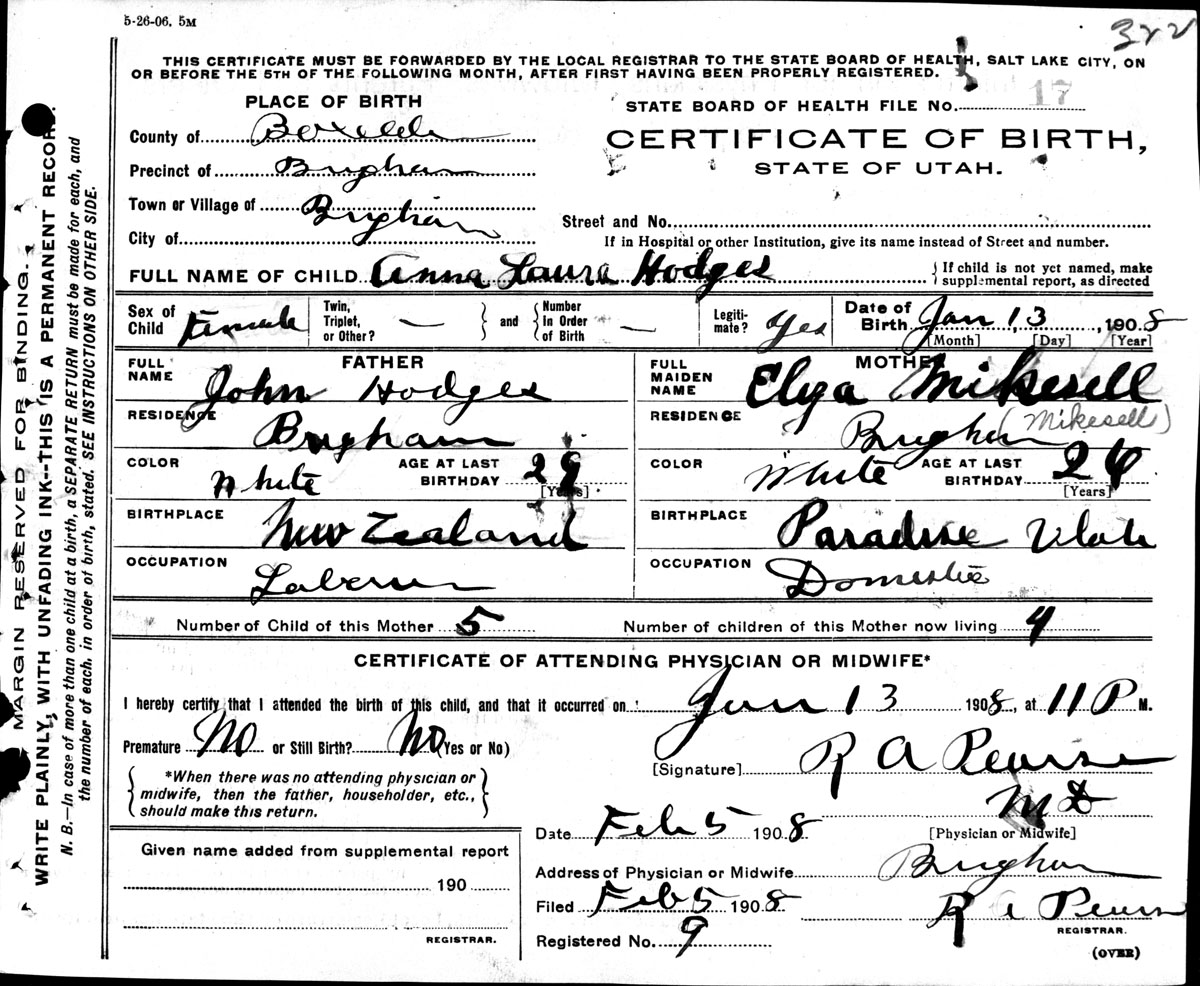 5-26-06. 5M
322
THIS CERTIFICATE MUST BE FORWARDED BY THE LOCAL REGISTRAR TO THE STATE BOARD OF HEALTH, SALT LAKE CITY, ON
OR BEFORE THE 5TH OF THE FOLLOWING MONTH, AFTER FIRST HAVING BEEN PROPERLY REGISTERED.
PLACE OF BIRTH
STATE BOARD OF HEALTH FILE No. 17
County of Boxelder
CERTIFICATE OF BIRTH,
Precinct of Brigham
STATE OF UTAH.
Town or Village of Brigham
Street and No.
City of
If in Hospital or other Institution, give its name instead of Street and number.
FULL NAME OF CHILD Anna Laura Hodges
If child is not yet named, make
supplemental report, as directed
Sex of Child Female Twin, Triplet, or Other? — and Number In Order of Birth — Legiti-mate? Yes Date of Birth Jan 13, 1908
[Month] [Day] [Year]
FATHER
MOTHER
FULL NAME John Hodges
FULL MAIDEN NAME Elyza Mikesell
RESIDENCE Brigham
RESIDENCE Brigham (Mikesell)
COLOR White AGE AT LAST BIRTHDAY 29 [Years]
COLOR White AGE AT LAST BIRTHDAY 26 [Years]
BIRTHPLACE New Zealand
BIRTHPLACE Paradise Utah
OCCUPATION Laborer
OCCUPATION Domestic
Number of Child of this Mother 5 Number of children of this Mother now living 4
CERTIFICATE OF ATTENDING PHYSICIAN OR MIDWIFE*
I hereby certify that I attended the birth of this child, and that it occurred on Jan 13 1908, at 11 P M.
Premature No or Still Birth? No (Yes or No)
[Signature] R A Pearse
M D
[Physician or Midwife]
*When there was no attending physician or
midwife, then the father, householder, etc.,
should make this return.
Date Feb 5 1908
Given name added from supplemental report
Address of Physician or Midwife Brigham
190
Filed Feb 5 1908 R A Pearse
REGISTRAR.
REGISTRAR.
Registered No. 9
(OVER)
MARGIN RESERVED FOR BINDING.
WRITE PLAINLY, WITH UNFADING INK--THIS IS A PERMANENT RECORD.
N. B.—In case of more than one child at a birth, a SEPARATE RETURN must be made for each, and
the number of each, in order of birth, stated. SEE INSTRUCTIONS ON OTHER SIDE.